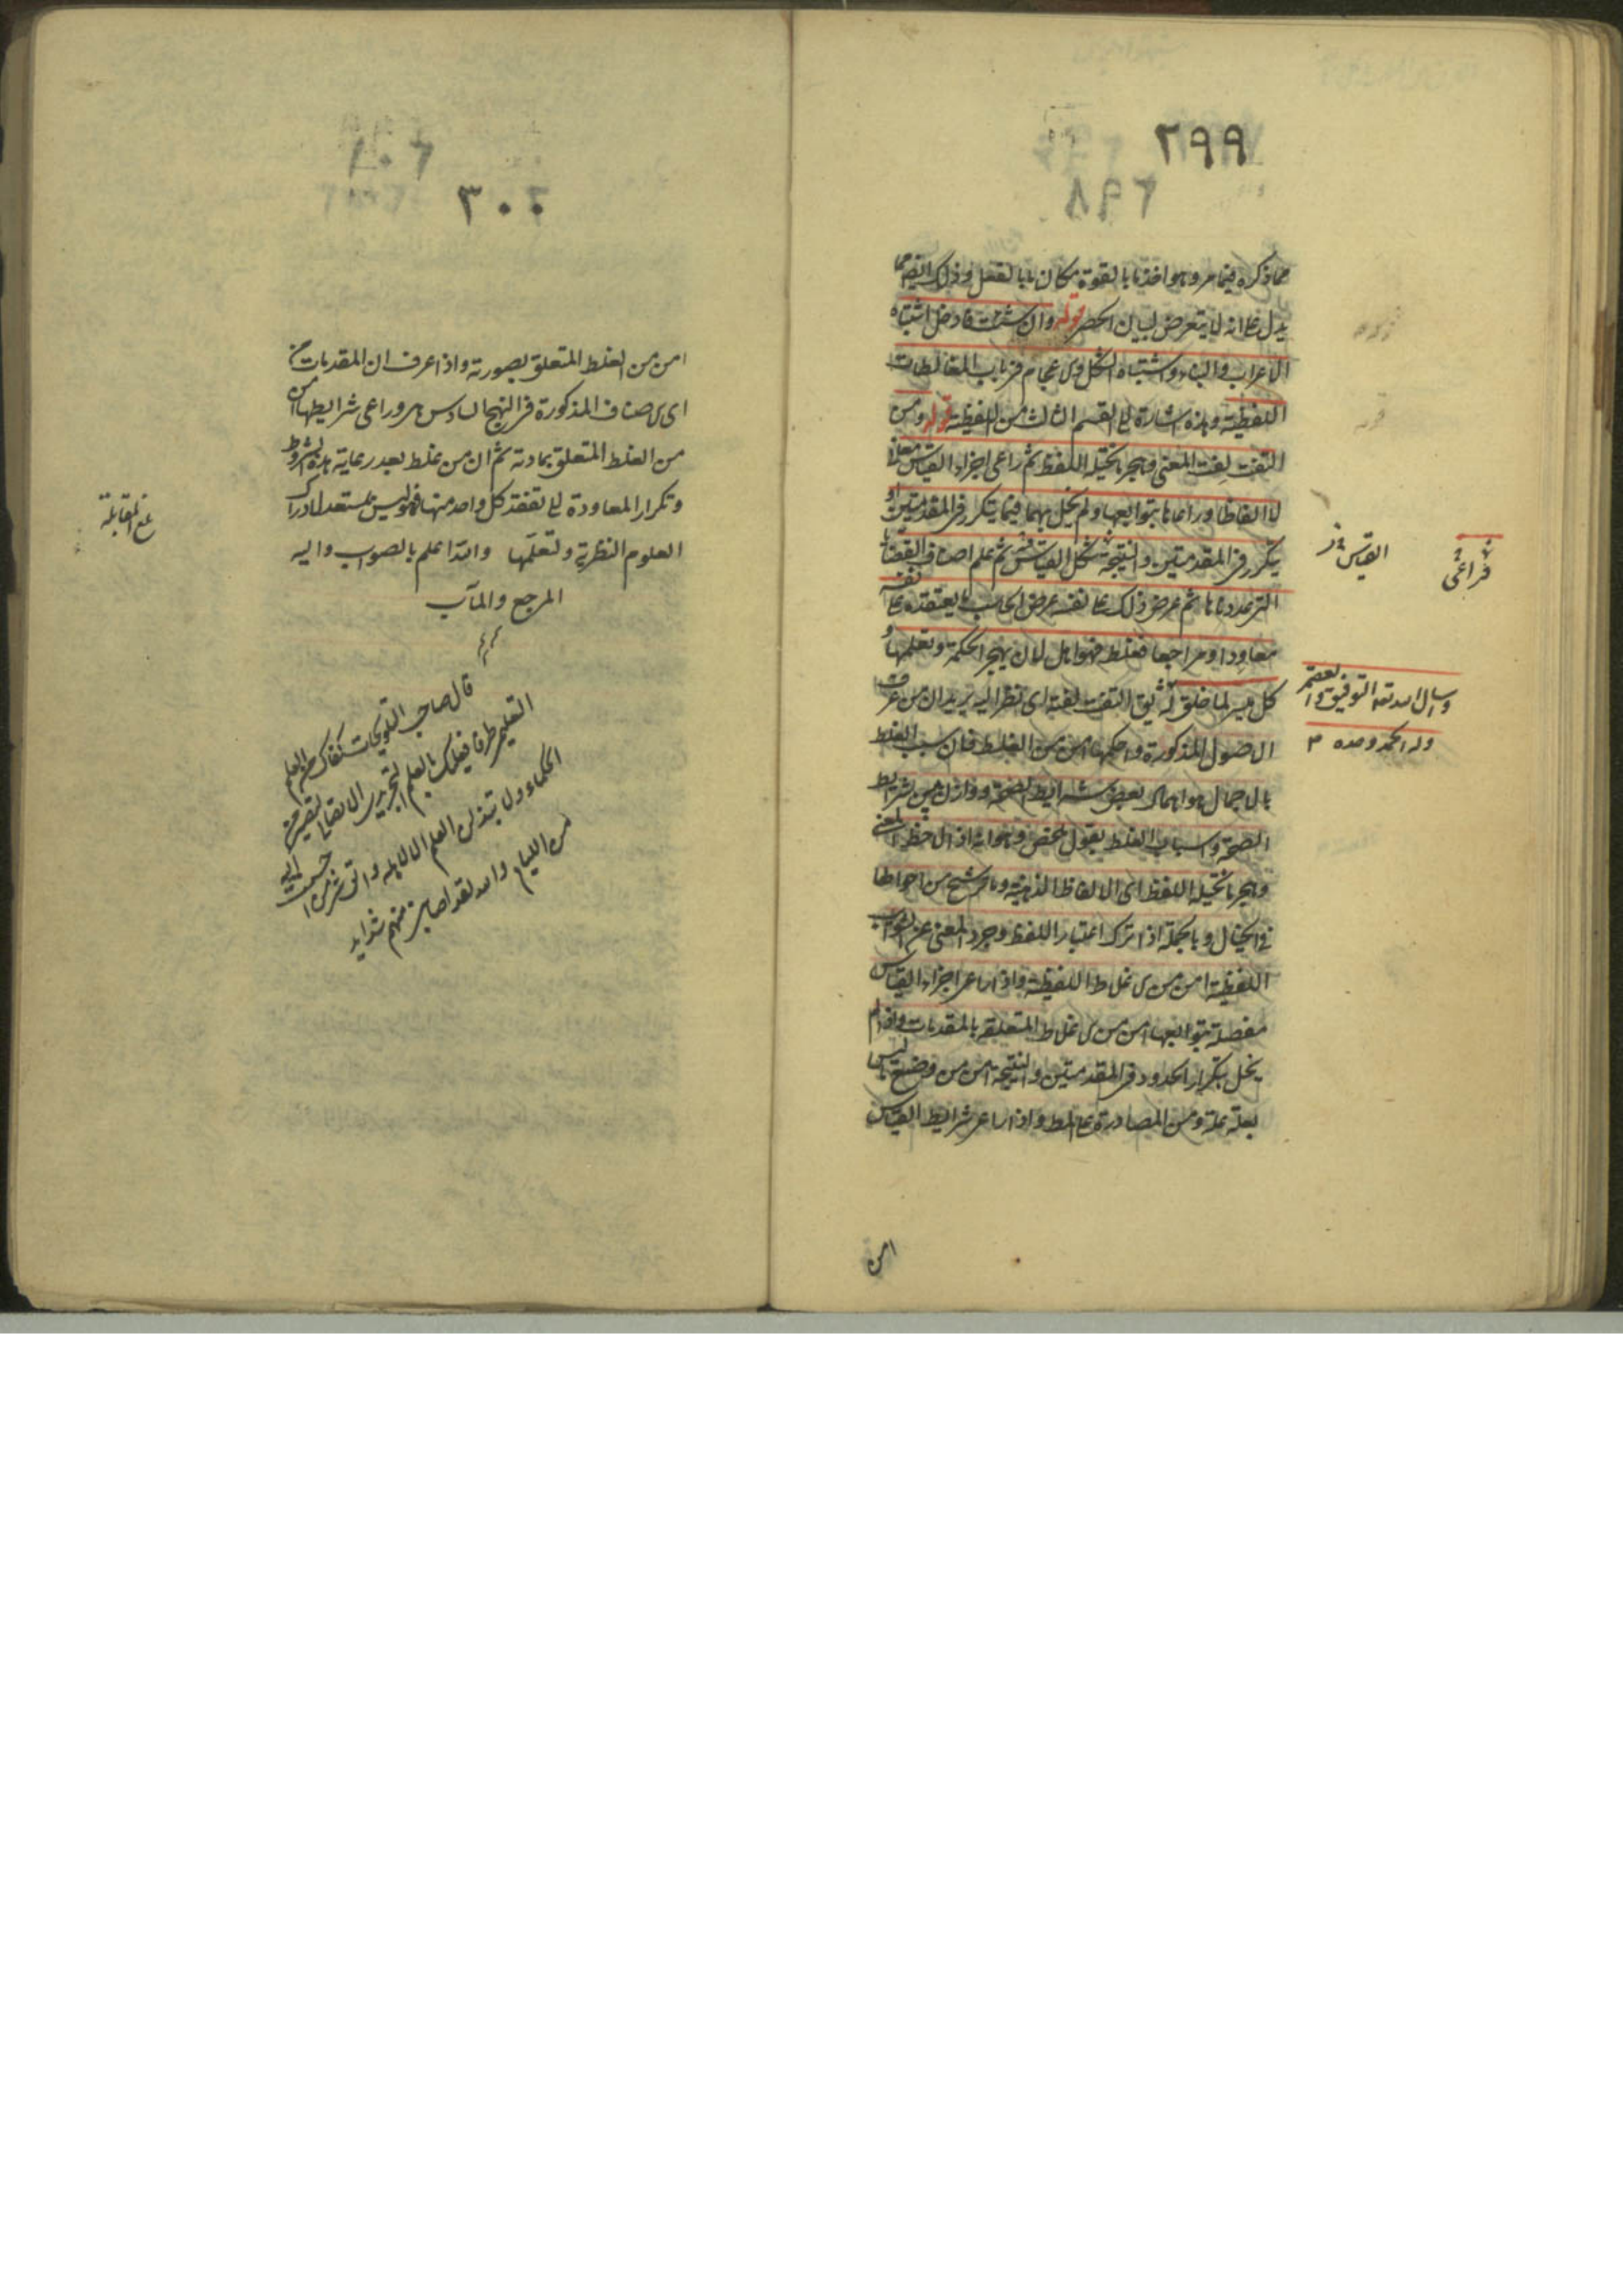 ٢٩٩
مما ذكره فيما مر وهو اخذ ما بالقوة مكان ما بالفعل وذلك ايضا مما
يدل على انه لا يتعرض لبيان الحصر قوله وان شئت فادخل اشتباه
الاعراب والبناء واشتباه الشكل والاعجام فى باب المغالطات
اللفظية وهذه اشارة الى القسم الثالث من اللفظية قوله ومن
التفت لفت المعنى وهجر ما يخيله اللفظ ثم راعى اجزاء القياس معانى
لا الفاظا وراعاها بتوابعها ولم يخل بها فيما يتكرر فى المقدمتين او
يتكرر فى المقدمتين والنتيجة شكل القياس ثم علم اصناف القضايا
التى عددناها ثم عرض ذلك على نفسه عرض الحاسب ما يعتقده على نفسه
معاودا ومراجعا فغلط فهو اهل لان يهجر الحكمة وتعلمها و
كل ميسر لما خلق له يق التفت لفته اى نظر اليه يريد ان من عرف
الاصول المذكورة واحكمها امن من الغلط فان سبب الغلط
بالاجمال هو اهمال بعض شرايط الصحة ووازن بين شرايط
الصحة واسباب الغلط بقول ملخص وهو انه اذا لاحظ المعنى
وهجر ما يخيله اللفظ اى الالفاظ الذهنية وما يترشح من احوالها
فى الخيال وبالجملة اذا ترك اعتبار اللفظ وجرد المعنى عن الشوايب
اللفظية امن من الاغلاط اللفظية واذا راعى اجزاء القياس
مفصلة بتوابعها امن من الاغلاط المتعلقة بالمقدمات واذا لم
يخل بتكرار الحدود فى المقدمتين والنتيجة امن من وضع ما ليس
بعلة علة ومن المصادرة على المط واذا راعى شرايط القياس
امن
فراعى
القياس
ونسال الله تعالى التوفيق والعصمة
وله الحمد وحده
٣٠٠
امن من الغلط المتعلق بصورته واذا عرف ان المقدمات من
اى الاصناف المذكورة فى النهج السادس هى وراعى شرايطها امن
من الغلط المتعلق بمادته ثم ان من غلط بعد رعاية هذه الشروط
وتكرار المعاودة الى تفقد كل واحد منها فهو ليس بمستعد لادراك
العلوم النظرية وتعلمها والله اعلم بالصواب واليه
المرجع والمآب
بلغ المقابلة
قال صاحب التلويحات كفاك من العلم
التعليمى طرفا فعليك بالعلم التجريدى الاتصالى
الحكماء ولا تبذلن العلم الا لاهله واتق شر من احسنت اليه
من اللئام ولقد اصابنى منهم شدايد